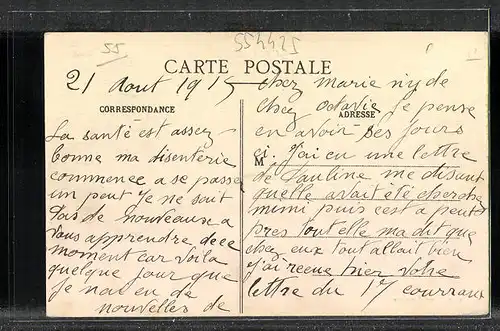 55
554425
CARTE POSTALE
21 Aout 1915
CORRESPONDANCE
La santé est assez
bonne ma disenterie
commence a se passer
un peut Je ne sait
pas de nouveaux a
vous apprendre de ce
moment car voila
quelque jour que
je nai eu de
nouvelles de
chez marie ny de
chez octavie Je pense
ADRESSE
en avoir ses jours
ci. J'ai eu une lettre
M
de Pauline me disant
quelle avait été cherche
mimi puis cest a peut
pres tout elle ma dit que
chez eux tout allait bien
j'ai recue hier votre
lettre du 17 courraux